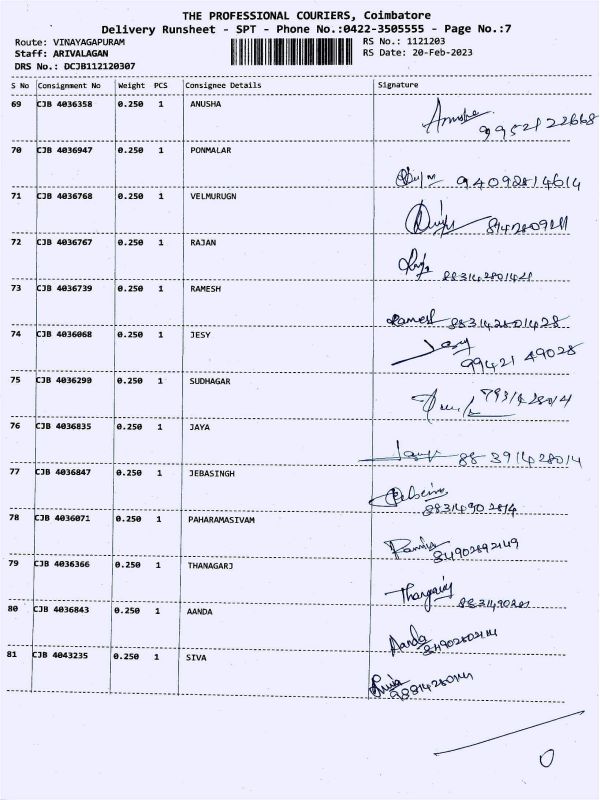 THE PROFESSIONAL COURIERS, Coimbatore
Delivery Runsheet - SPT - Phone No.:0422-3505555 - Page No.:7
Route: VINAYAGAPURAM RS No.: 1121203
Staff: ARIVALAGAN RS Date: 20-Feb-2023
DRS No.: DCJB112120307
S No Consignment No Weight PCS Consignee Details Signature
69 CJB 4036358 0.250 1 ANUSHA Anusha 9952122668
70 CJB 4036947 0.250 1 PONMALAR 94092814614
71 CJB 4036768 0.250 1 VELMURUGN
72 CJB 4036767 0.250 1 RAJAN
73 CJB 4036739 0.250 1 RAMESH Ramesh 883142801428
74 CJB 4036068 0.250 1 JESY Jesy 99421 49028
75 CJB 4036290 0.250 1 SUDHAGAR
76 CJB 4036835 0.250 1 JAYA 88 391428014
77 CJB 4036847 0.250 1 JEBASINGH 88314902814
78 CJB 4036071 0.250 1 PAHARAMASIVAM
79 CJB 4036366 0.250 1 THANAGARJ
80 CJB 4036843 0.250 1 AANDA Aanda
81 CJB 4043235 0.250 1 SIVA